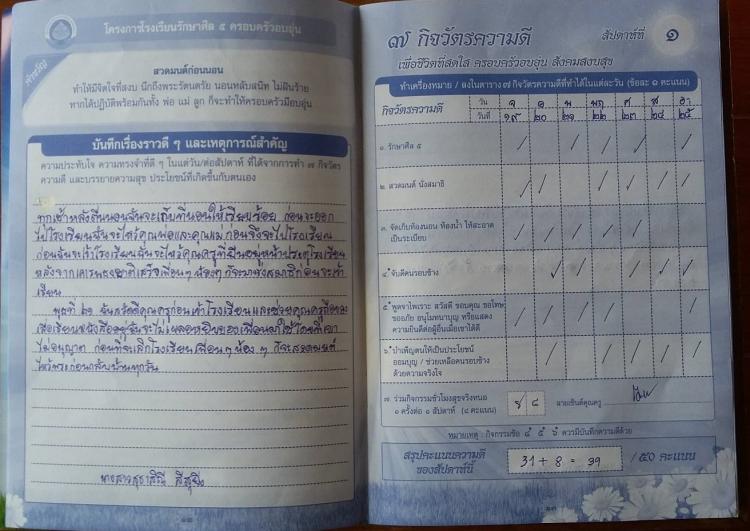 โครงการโรงเรียนรักษาศีล ๕ ครอบครัวอบอุ่น
คำขวัญ
สวดมนต์ก่อนนอน
ทำให้มีจิตใจที่สงบ นึกถึงพระรัตนตรัย นอนหลับสนิท ไม่ฝันร้าย
หากได้ปฏิบัติพร้อมกันทั้ง พ่อ แม่ ลูก ก็จะทำให้ครอบครัวมีอบอุ่น
บันทึกเรื่องราวดี ๆ และเหตุการณ์สำคัญ
ความประทับใจ ความทรงจำที่ดี ๆ ในแต่ละวัน/ต่อสัปดาห์ ที่ได้จากการทำ ๗ กิจวัตร
ความดี และบรรยายความสุข ประโยชน์ที่เกิดขึ้นกับตนเอง
ทุกเช้าหลังตื่นนอนฉันจะเก็บที่นอนให้เรียบร้อย ก่อนจะออก
ไปโรงเรียนฉันจะไหว้คุณพ่อและคุณแม่ก่อนจึงจะไปโรงเรียน
ก่อนฉันจะเข้าโรงเรียนฉันจะไหว้คุณครูที่ยืนอยู่หน้าประตูโรงเรียน
หลังจากเคารพธงชาติเสร็จเพื่อนๆ น้องๆ ก็จะนั่งสมาธิก่อนจะเข้า
เรียน
พุธที่ ๒๑ ฉันสวัสดีคุณครูก่อนเข้าโรงเรียนและช่วยคุณครูถือของ
เมื่อเรียนหนังสืออยู่ฉันจะไม่เผลอหยิบของเพื่อนมาใช้โดยที่เขา
ไม่อนุญาต ก่อนที่จะเลิกโรงเรียนเพื่อนๆ น้อง ๆ ก็จะสวดมนต์
ไหว้พระก่อนกลับบ้านทุกวัน
นางสาวสุธาสินี
๑๒
๗ กิจวัตรความดี สัปดาห์ที่ ๑
เพื่อชีวิตที่สดใส ครอบครัวอบอุ่น สังคมสงบสุข
ทำเครื่องหมาย / ลงในตาราง ๗ กิจวัตรความดีที่ทำได้ในแต่ละวัน (ข้อละ ๑ คะแนน)
กิจวัตรความดี วัน จ อ พ พฤ ศ ส อา
วันที่ ๑๙ ๒๐ ๒๑ ๒๒ ๒๓ ๒๔ ๒๕
๑. รักษาศีล ๕ / / / / / /
๒. สวดมนต์ นั่งสมาธิ / / / / / /
๓. จัดเก็บห้องนอน ห้องน้ำ ให้สะอาด
เป็นระเบียบ / / / / / /
๔. จับดีคนรอบข้าง
๕. พูดจาไพเราะ สวัสดี ขอบคุณ ขอโทษ
ขออภัย อนุโมทนาบุญ หรือแสดง
ความยินดีต่อผู้อื่นเมื่อเขาได้ดี
๖. บำเพ็ญตนให้เป็นประโยชน์
ออมบุญ / ช่วยเหลือคนรอบข้าง
ด้วยความจริงใจ
๗. ร่วมกิจกรรมชั่วโมงสุขจริงหนอ
๑ ครั้งต่อ ๑ สัปดาห์ (๘ คะแนน) ๘ / ๘ ลายเซ็นต์คุณครู
หมายเหตุ : กิจกรรมข้อ ๔ ๕ ๖ ควรมีบันทึกความดีด้วย
สรุปคะแนนความดี
ของสัปดาห์นี้ 31 + 8 = 39 / ๕๐ คะแนน
๑๓